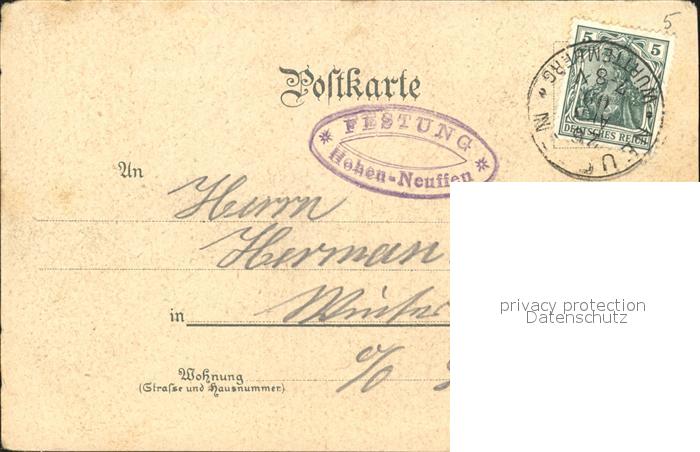 5
5 5
DEUTSCHES REICH
WÜRTTEMBERG
7-8 V
Postkarte
FESTUNG
Hohen-Neuffen
An
Herrn
Herman
in Winter
privacy protection
Datenschutz
Wohnung
(Straße und Hausnummer)
%